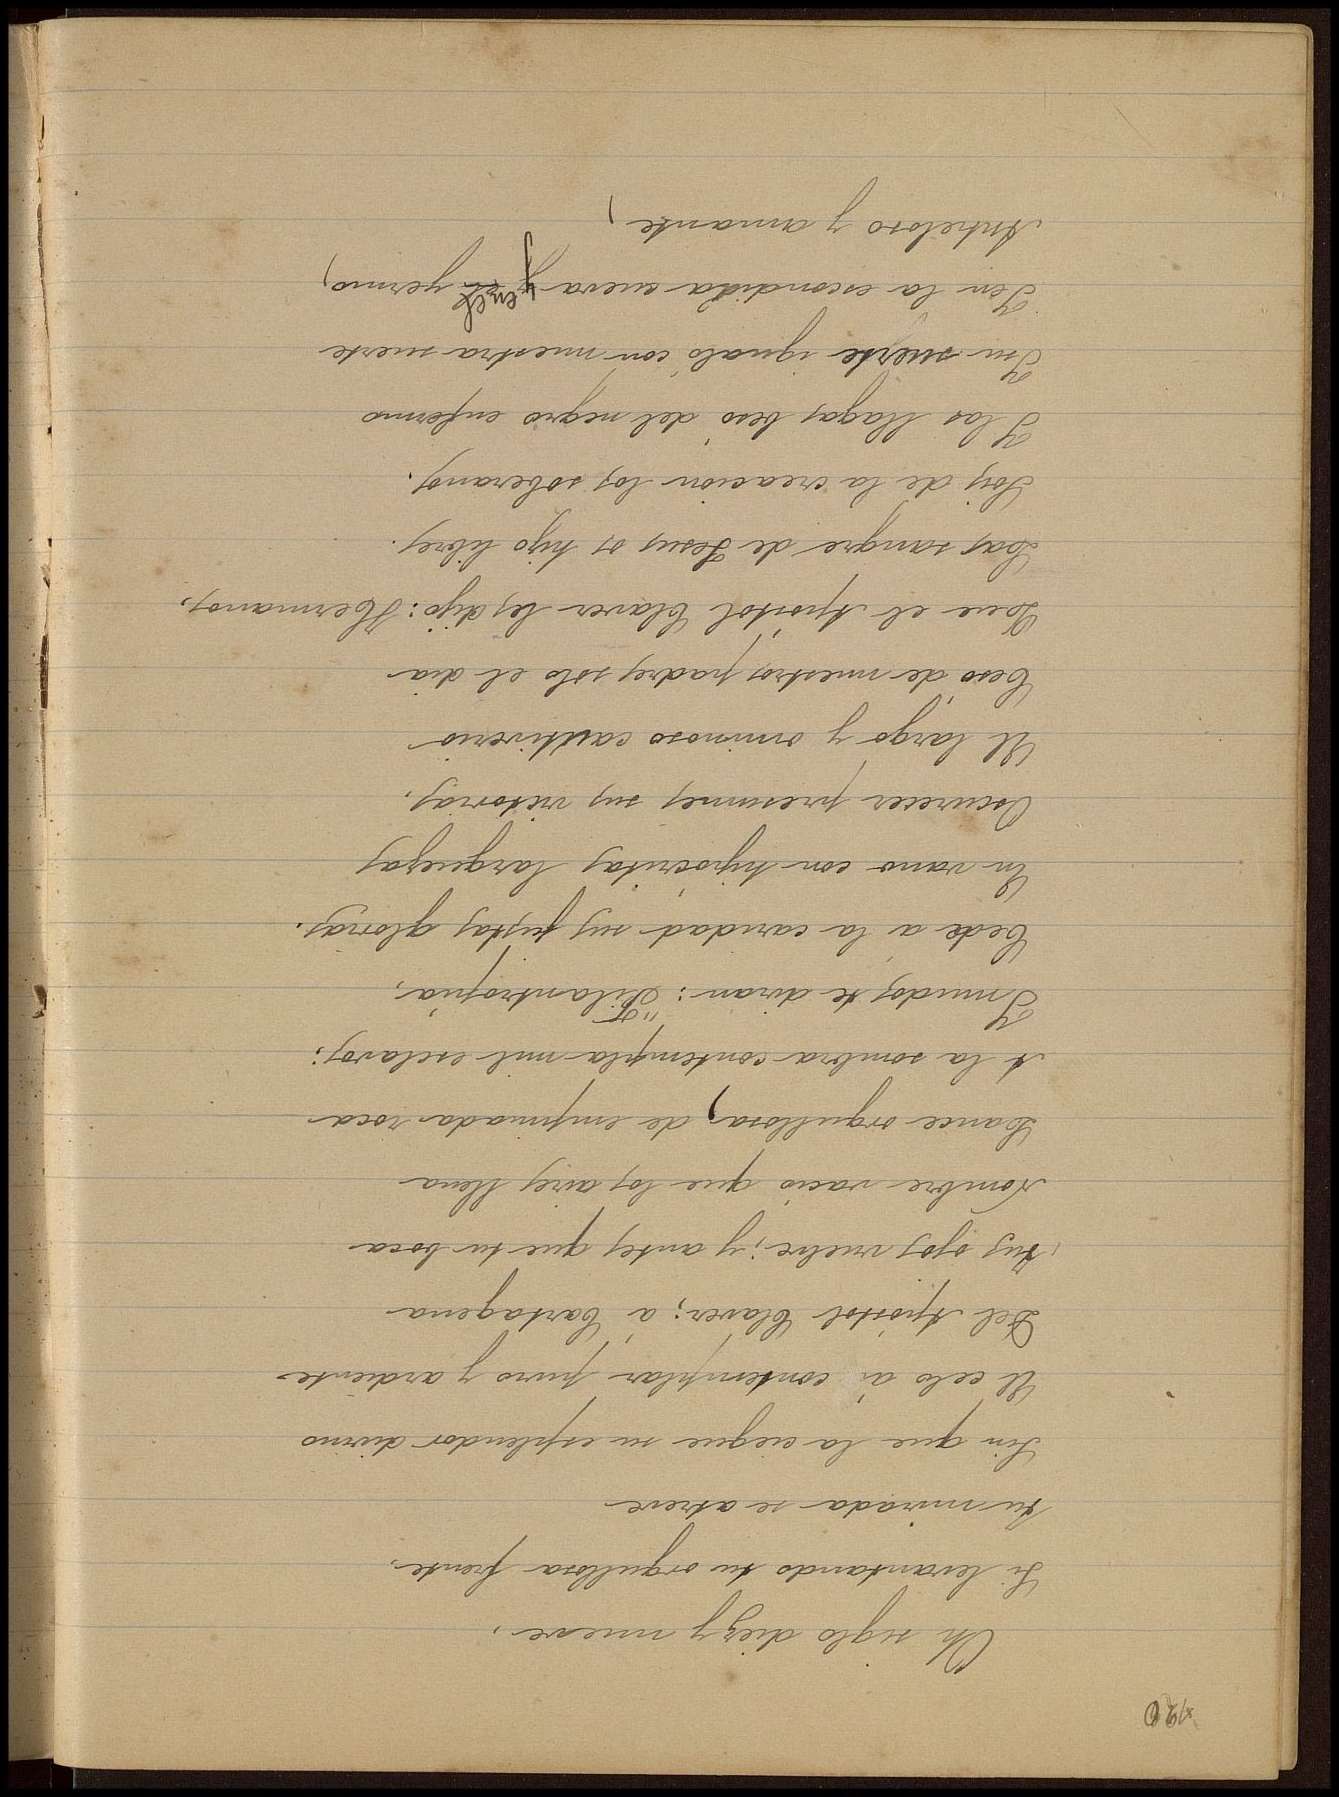 Oh siglo diez y nueve,
Si levantando tu orgullosa frente,
tu mirada se atreve
Sin que la ciegue su esplendor divino
El celo á contemplar puro y ardiente
Del Apóstol Claver; á Cartagena
tus ojos vuelve; y antes que tu boca
Nombre vacio que los aires llena
Lance orgullosa, de empinada roca
A la sombra contempla mil esclavos;
I mudos te diran: "Filantropía,
Cede á la caridad sus justas glorias.
En vano con hipócritas larguezas
Oscurecer presumes sus victorias,
El largo y ominoso cautiverio
Cesó de nuestros padres solo el dia
Que el Apóstol Claver les dijo: Hermanos,
Las sangre de Jesus os hizo libres.
Sois de la creacion los soberanos.
I las llagas besó del negro enfermo
I su suerte igualó con nuestra suerte
I en la escondida cueva y en el yermo,
Anheloso y amante,